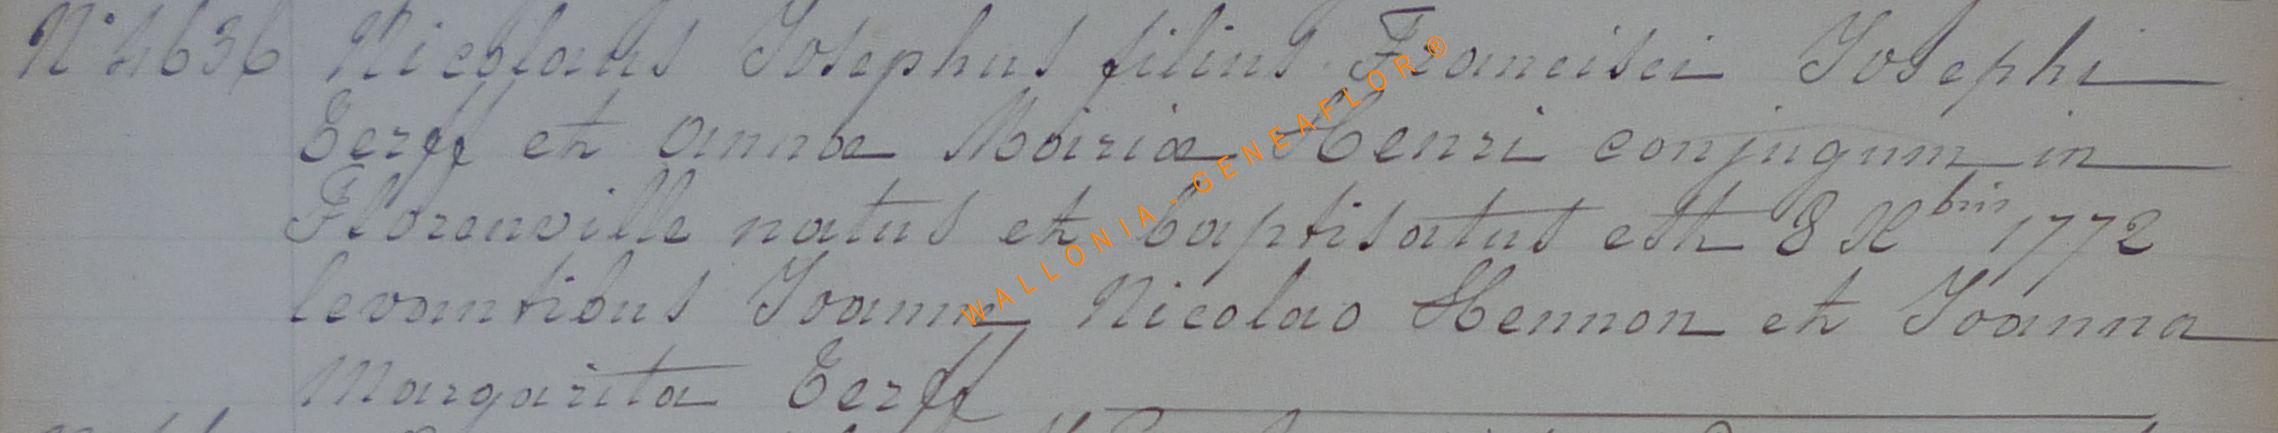 N° 4636 Nicolaus Josephus filius Francisci Josephi
Cerff et Annæ Mariæ Henri conjugum in
Florenville natus et baptisatus est 8 Xbris 1772
levantibus Joanne Nicolao Hennon et Joanna
Margarita Cerff
WALLONIA-GENEAFLOR®